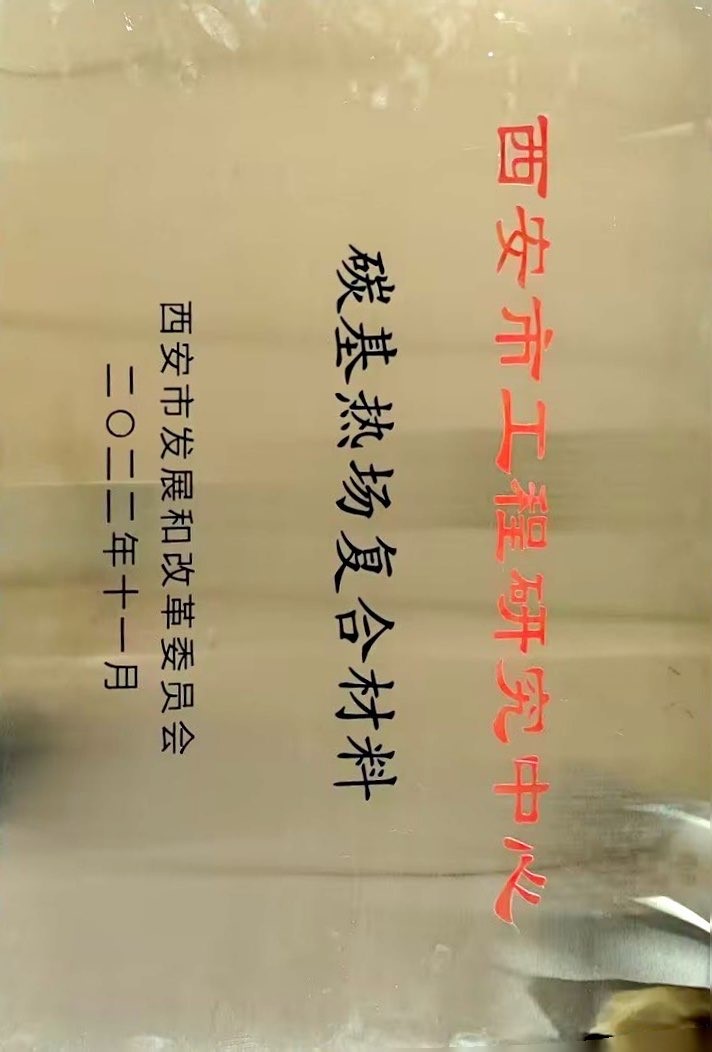 西安市工程研究中心
碳基热场复合材料
西安市发展和改革委员会
二〇二二年十一月